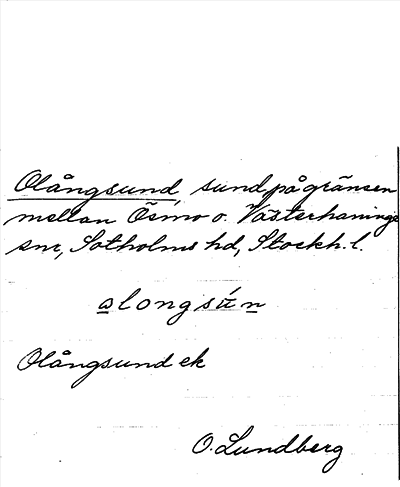 Olångsund, sund på gränsen
mellan Ösmo o. Västerhaninge
snr, Sotholms hd, Stockh. l.
alongsún
Olångsund ek
O. Lundberg